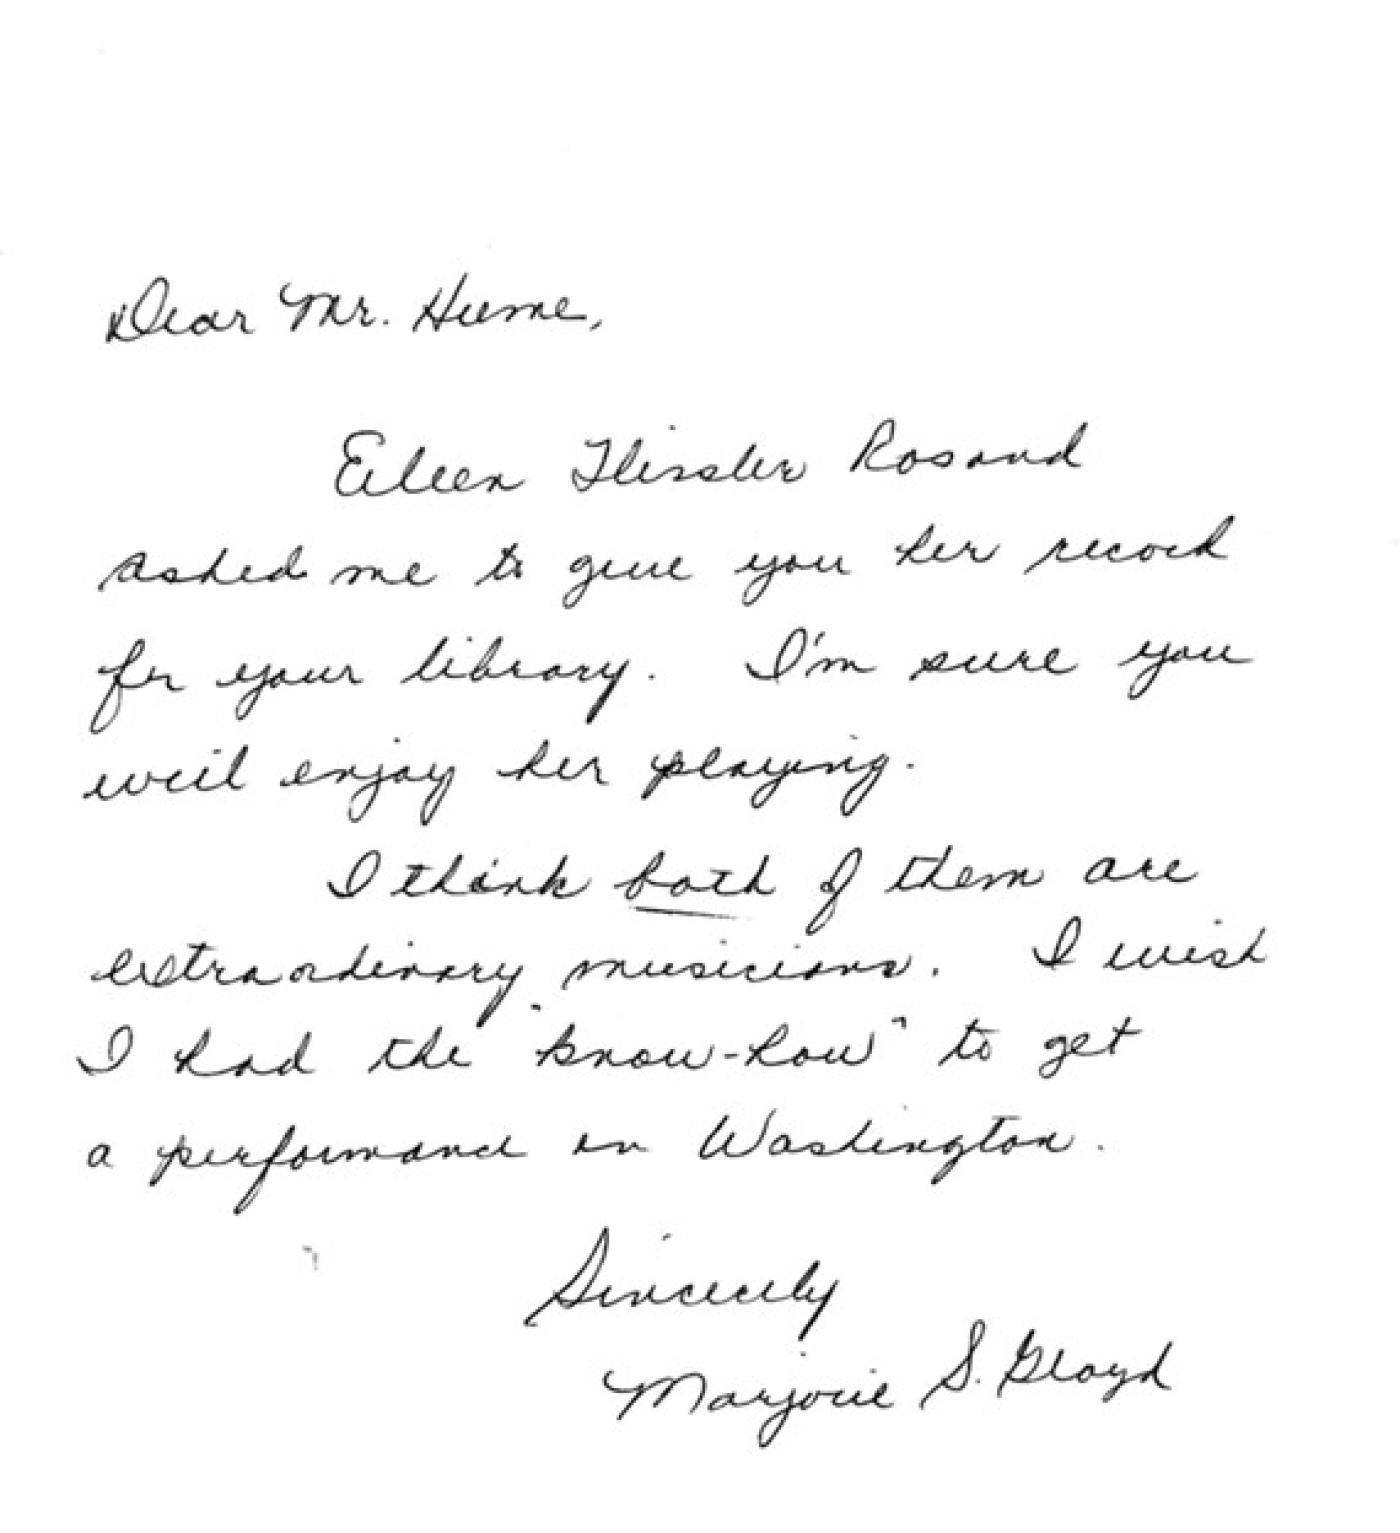 Dear Mr. Hume,
Eileen Flissler Rosand
asked me to give you her record
for your library. I'm sure you
will enjoy her playing.
I think both of them are
extraordinary musicians. I wish
I had the "know-how" to get
a performance in Washington.
Sincerely
Marjorie S. Gloyd